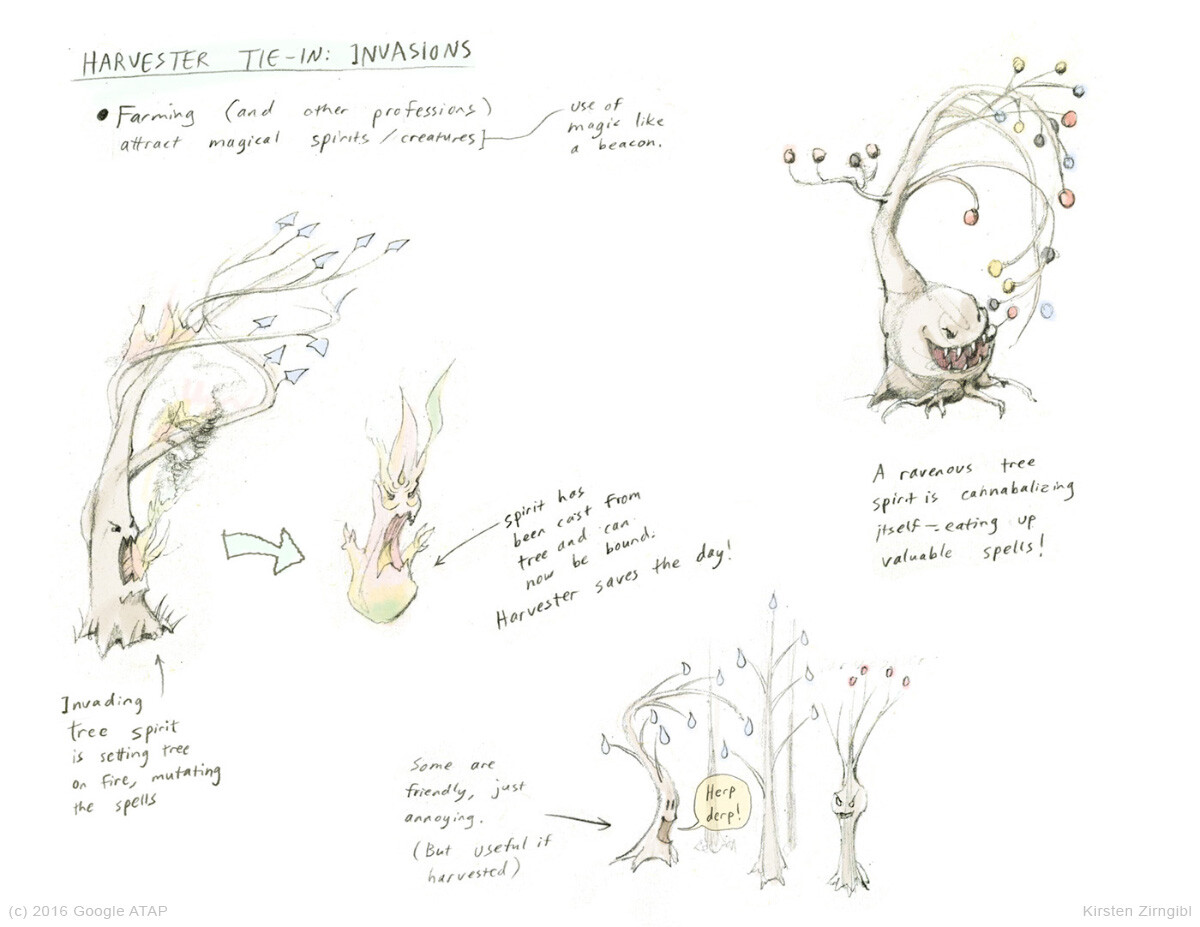 HARVESTER TIE-IN: INVASIONS
• Farming (and other professions)
attract magical spirits/creatures]
use of
magic like
a beacon.
A ravenous tree
spirit is cannabalizing
itself - eating up
valuable spells!
spirit has
been cast from
tree and can
now be bound.
Harvester saves the day!
Invading
tree spirit
is setting tree
on fire, mutating
the spells
Some are
friendly, just
annoying.
(But useful if
harvested)
Herp
derp!
(c) 2016 Google ATAP
Kirsten Zirngibl